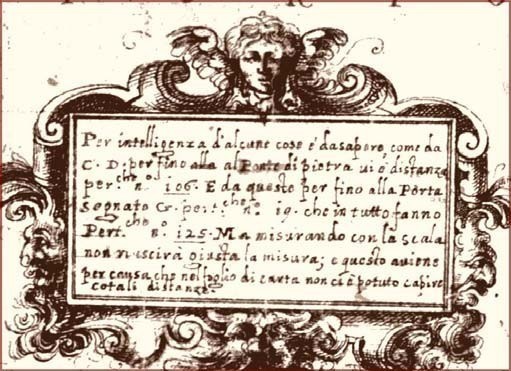 Per intelligenza d'alcune cose è da sapere, come da
C. D. per fino alla al Ponte di pietra vi è distanza
per:che n.o 106. E da questo per fino alla Porta
segnato G. per:che n.o 19. che in tutto fanno
Pert.che n.o 125. Ma misurando con la scala
non riuscira giusta la misura; e questo auiene
per causa, che nel foglio di carta non ci è potuto capire
cotali distanze.